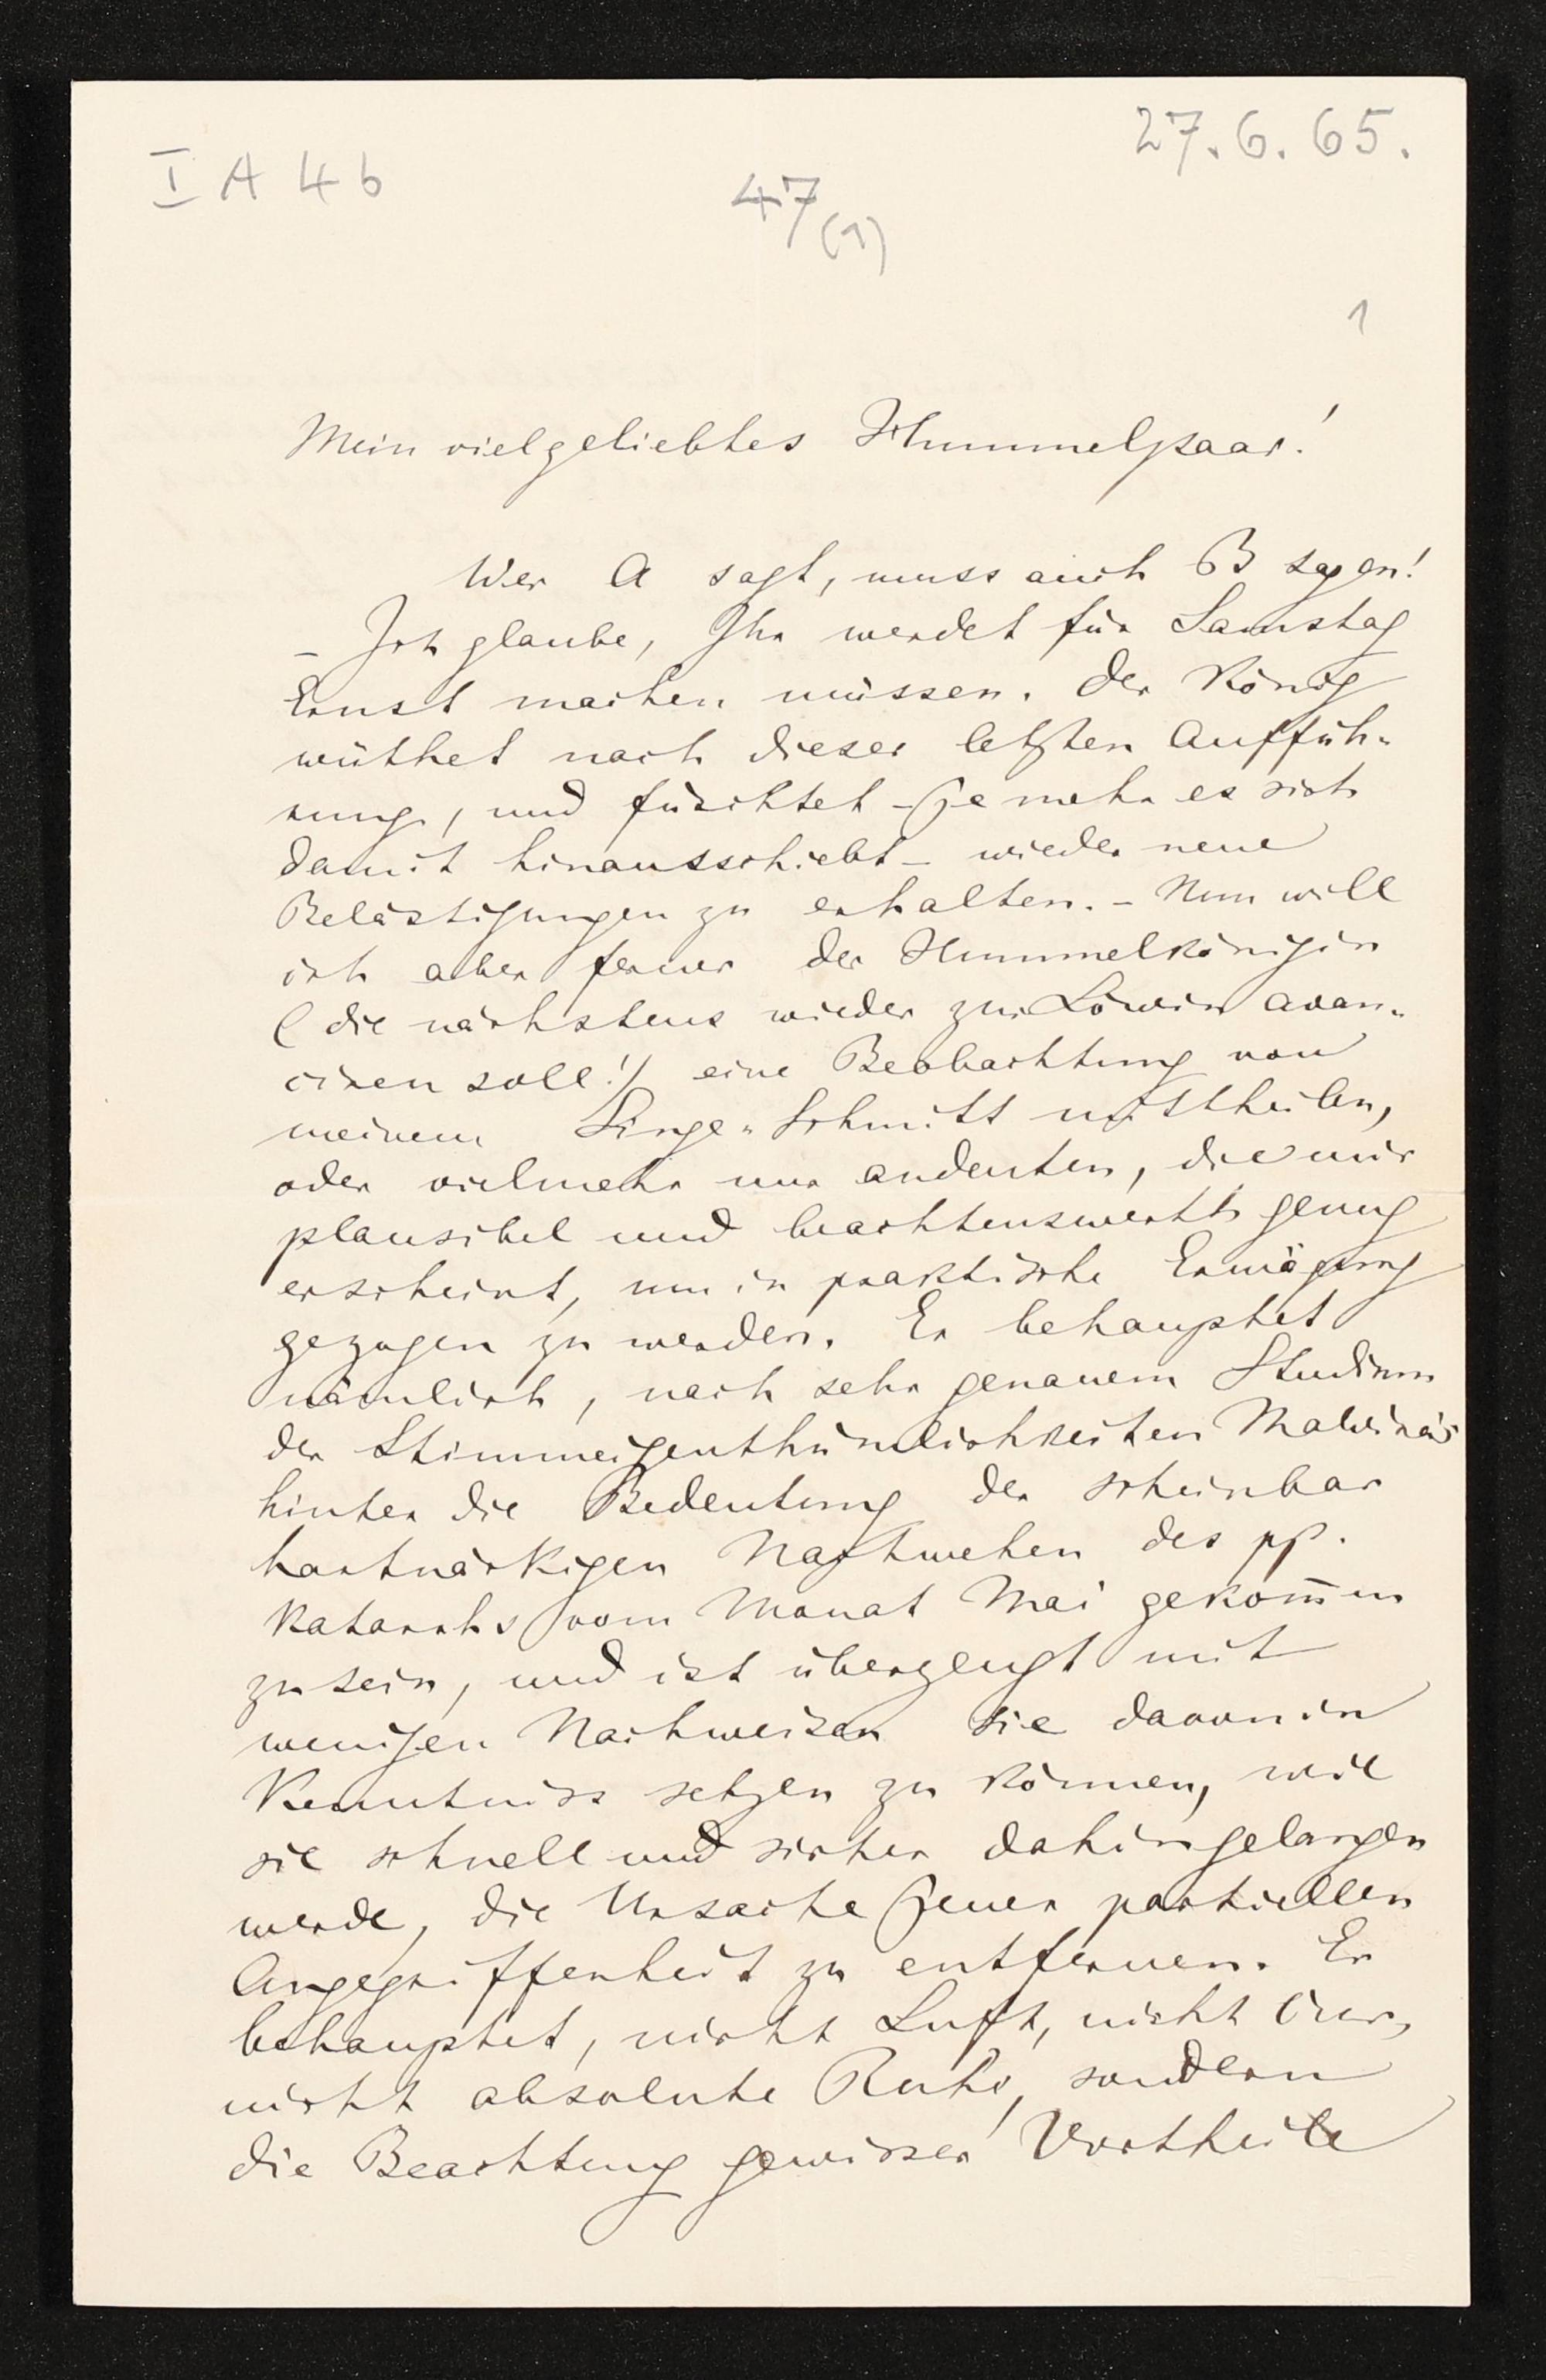 27.6.65.
I A 4 b
47(1)
1
Mein vielgeliebtes Hummelpaar!
Wer A sagt, muss auch B sagen!
– Ich glaube, Ihr werdet für Samstag
Ernst machen müssen. Der König
wüthet nach dieser letzten Auffüh-
rung, und fürchtet – je mehr es sich
damit hinausschiebt – wieder neue
Belästigungen zu erhalten. – Nun will
ich aber ferner der Hummelkönigin
(die nächstens wieder zur Löwin avan-
ciren soll!) eine Beobachtung von
meinem Singe-Schmitt mittheilen,
oder vielmehr nur andeuten, die mir
plausibel und beachtenswerth genug
erscheint, um in praktische Erwägung
gezogen zu werden. Er behauptet
nämlich, nach sehr genauem Studium
der Stimmeigenthümlichkeiten Malvina's
hinter die Bedeutung der scheinbar
hartnäckigen Nachwehen des pp.
Katarrhs vom Monat Mai gekom̅en
zu sein, und ist überzeugt mit
wenigen Nachweisen sie davon in
Kenntniss setzen zu können, wie
sie schnell und sicher dahin gelangen
werde, die Ursache jener partiellen
Angegriffenheit zu entfernen. Er
behauptet, nicht Luft, nicht Cur,
nicht absolute Ruhe, sondern
die Beachtung gewisser Vortheile